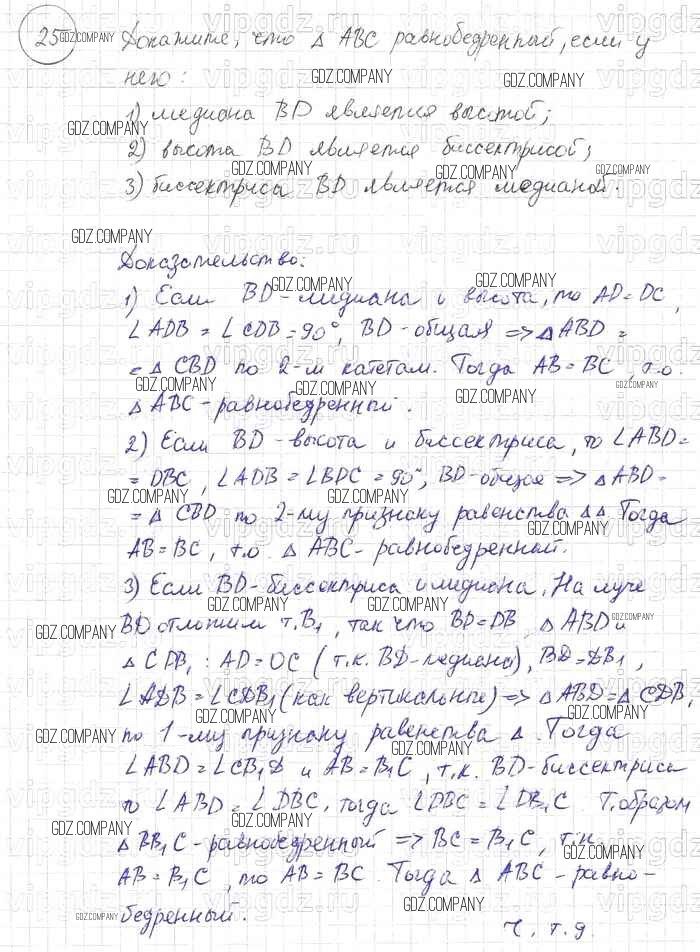 25 Докажите, что △ ABC равнобедренный, если у
него:
1) медиана BD является высотой;
2) высота BD является биссектрисой;
3) биссектриса BD является медианой.
Доказательство:
1) Если BD - медиана и высота, то AD = DC,
∠ADB = ∠CDB = 90°, BD - общая => △ABD =
= △ CBD по 2-м катетам. Тогда AB = BC, т.о.
△ ABC - равнобедренный.
2) Если BD - высота и биссектриса, то ∠ABD =
= DBC, ∠ADB = ∠BDC = 90°, BD - общая => △ABD =
= △ CBD по 2-му признаку равенства △△ Тогда
AB = BC, т.о. △ ABC - равнобедренный.
3) Если BD - биссектриса и медиана, На луче
BD отложим т.B₁, так что BD = DB, △ ABD и
△ CDB₁ : AD = DC (т.к. BD - медиана), BD = DB₁,
∠ADB = ∠CDB₁ (как вертикальные) => △ABD = △ CDB₁
по 1-му признаку равенства △. Тогда
∠ABD = ∠CB₁D и AB = B₁C, т.к. BD - биссектриса
то ∠ABD = ∠DBC, тогда ∠DBC = ∠DB₁C Т.образом
△BB₁C - равнобедренный => BC = B₁C, т.к.
AB = B₁C, то AB = BC. Тогда △ ABC - равно-
бедренный.
ч. т. д.
GDZ.COMPANY
vipgdz.ru